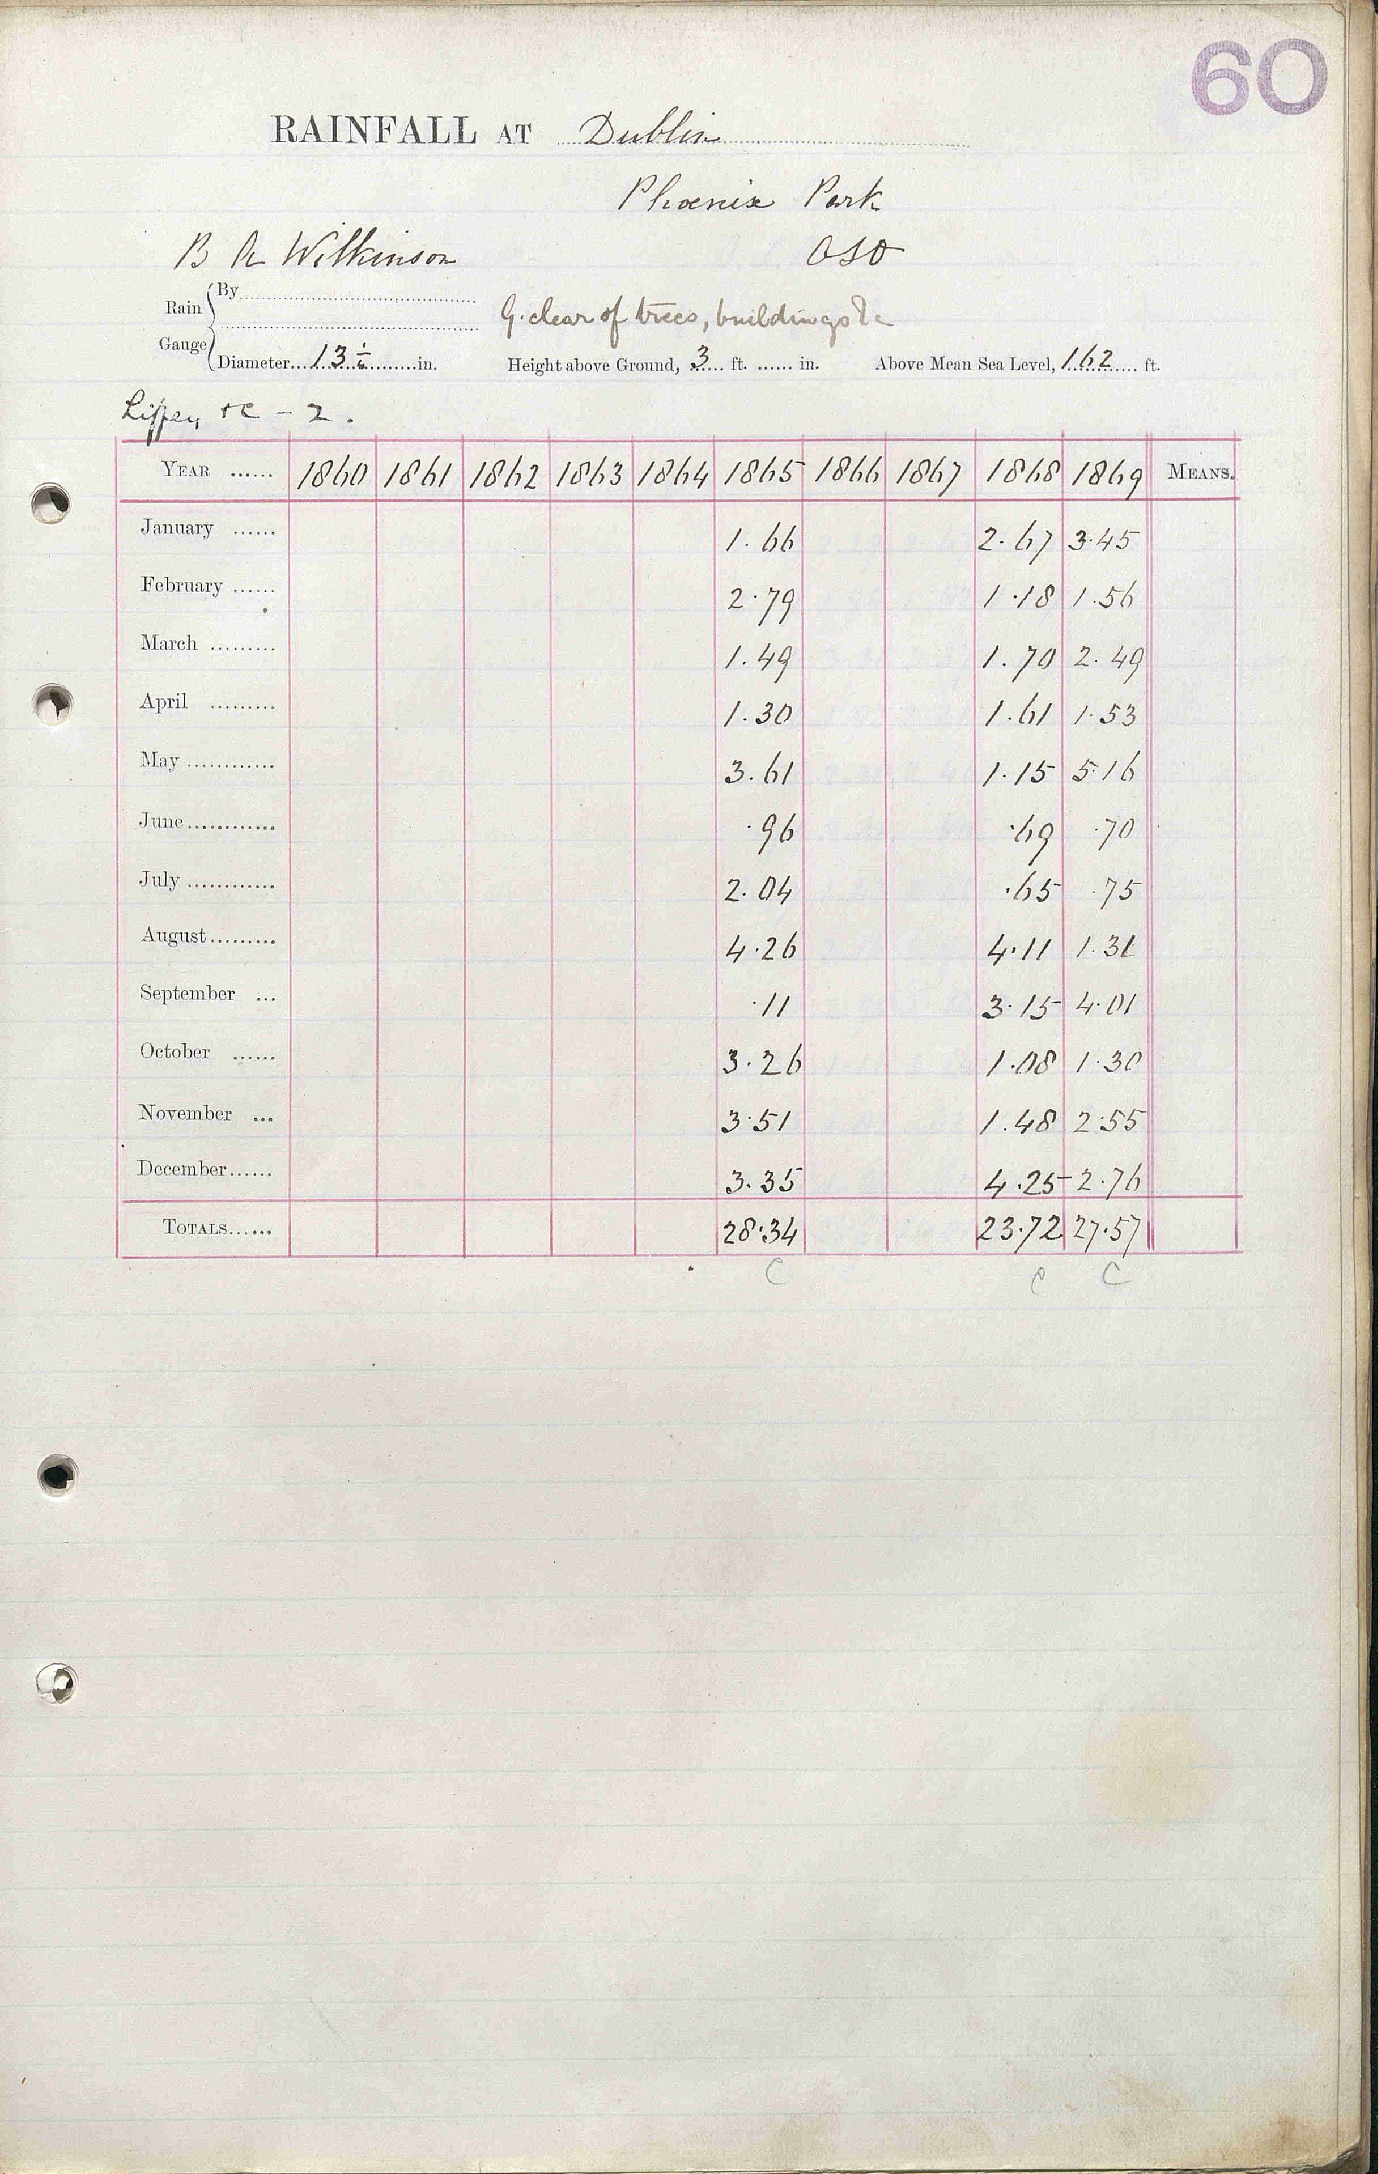 60
RAINFALL AT Dublin
Phoenix Park
B A Wilkinson OSO
Rain Gauge By
G. clear of trees, buildings &c
Diameter 13 in. Height above Ground, 3 ft. in. Above Mean Sea Level, 162 ft.
Liffey &c - 2.
YEAR 1860 1861 1862 1863 1864 1865 1866 1867 1868 1869 MEANS.
January 1.66 2.67 3.45
February 2.79 1.18 1.56
March 1.49 1.70 2.49
April 1.30 1.61 1.53
May 3.61 1.15 5.16
June .96 .69 .70
July 2.04 .65 .75
August 4.26 4.11 1.31
September .11 3.15 4.01
October 3.26 1.08 1.30
November 3.51 1.48 2.55
December 3.35 4.25 2.76
TOTALS 28.34 23.72 27.57
C C C